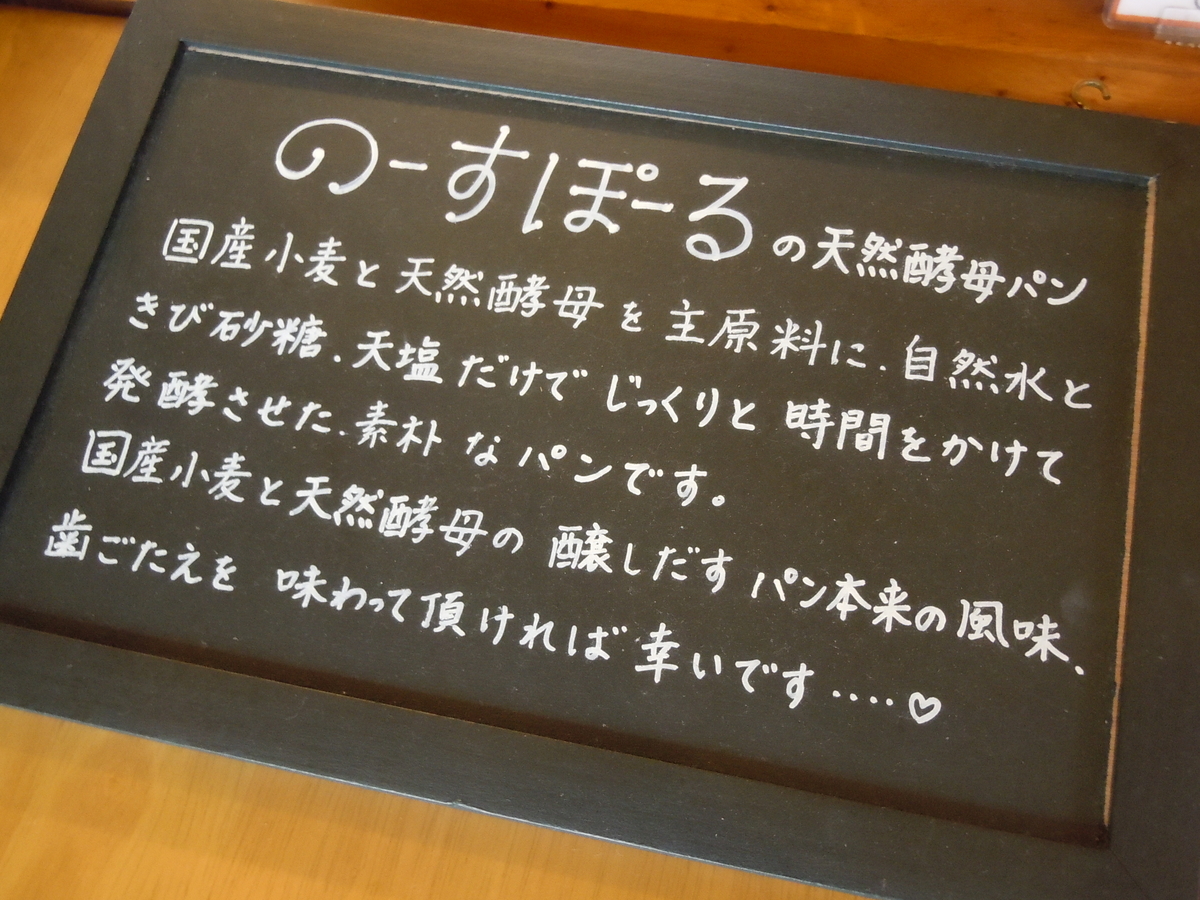 のーすぽーるの天然酵母パン
国産小麦と天然酵母を主原料に、自然水と
きび砂糖、天塩だけでじっくりと時間をかけて
発酵させた、素朴なパンです。
国産小麦と天然酵母の醸しだすパン本来の風味、
歯ごたえを味わって頂ければ幸いです‥‥♡